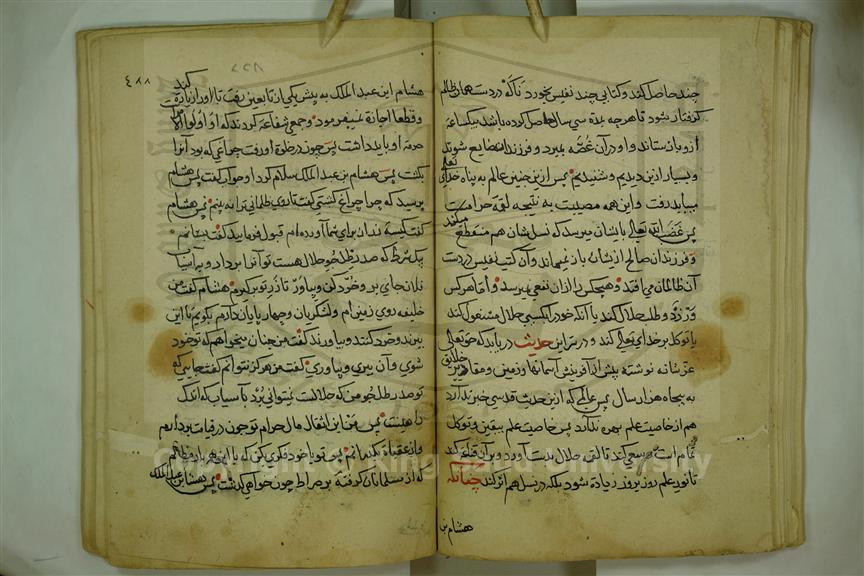 چند حاصل کند و کتابی چند نفیس بخورد ناکه در دست همان ظالم
کرفتار شود تا هرچه مدة سی سال حاصل کرده باشد بیکساعة
ازو باز ستاند و او در آن غصه بمیرد و فرزندان ضایع شوند
و بسیار ازین دیدیم و شنیدیم پس از چنین عالم به پناه خدای تعالی
میباید رفت و این همه مصیبت به نتیجه لقمه حرامست
پس غضب الله تعالی باینشان میرسد که نسل شان هم منقطع میکند
و فرزندان صالح ازیشان باز نمیماند و آن کتب نفیس در دست
آن ظالمان می افتد و هیچکس را از آن نفعی نمیرسد و اما هر کس
ورزد و طلب حلال کند یا آنکه خود را بکسبی حلال مشغول کند
یا توکل بر خدای تعالی کند و در سر این حدیث دریابد که حق تعالی
عز شانه نوشته پیش از آفرینش آسمانها و زمین و مقادیر خلایق
به پنجاه هزار سال پس عالم که ازین حدیث قدسی خبر ندارد
هم از خاصیت علم بهره ندارد پس خاصیت علم بیقین و توکل
تمام است سعی کند تا لقمه حلال بدست آورد و بر آن قناعت کند
تا نور علم روز بروز زیاده شود بلکه در نسل هم اثر کند چنانکه
هشام بن
٤٨٨
هشام ابن عبد الملک به پیش یکی از تابعین رفت تا او را زیارت کند
و قطعا اجازة نمیفرمود و جمعی شفاعة کردند که او اولو الامر است
حرمة او باید داشت پس چون در خلوة او رفت چراغی که بود آنرا
بکشت پس هشام بن عبد الملک سلام کرد او جواب کفت پس هشام
پرسید که چرا چراغ کشتی کفت تا روی ظلمانی ترا نه بینم پس هشام
کفت کیسه زر از برای شما آورده ام قبول فرمایید کفت بستانم
بیک شرط که صد رطل جو حلال هست تو آنرا بردار و به آسیا
فلان جای بر و خورد کن و بیاور تا زر تو بکیرم هشام کفت من
خلیفه روی زمین ام و لشکریان و چهارپایان دارم بکویم تا این
ببرند و خورد کنند و بیاورند کفت من چنان میخواهم که تو خود
شوی و آن ببری و بیاوری کفت من هرکز نتوانم کفت جایی که
تو صد رطل جو من که حلالست نمیتوانی برد بآسیاب که اندک
راهیست پس من این اثقال مال حرام تو چون در قیامت بردارم
و از عقبات بکذرانم پس تو با خود فکری کن که با این همه بار مظالم
که از مسلمانان کرفته بر صراط چون خواهی کذشت پس هشام ابن عبد الملک